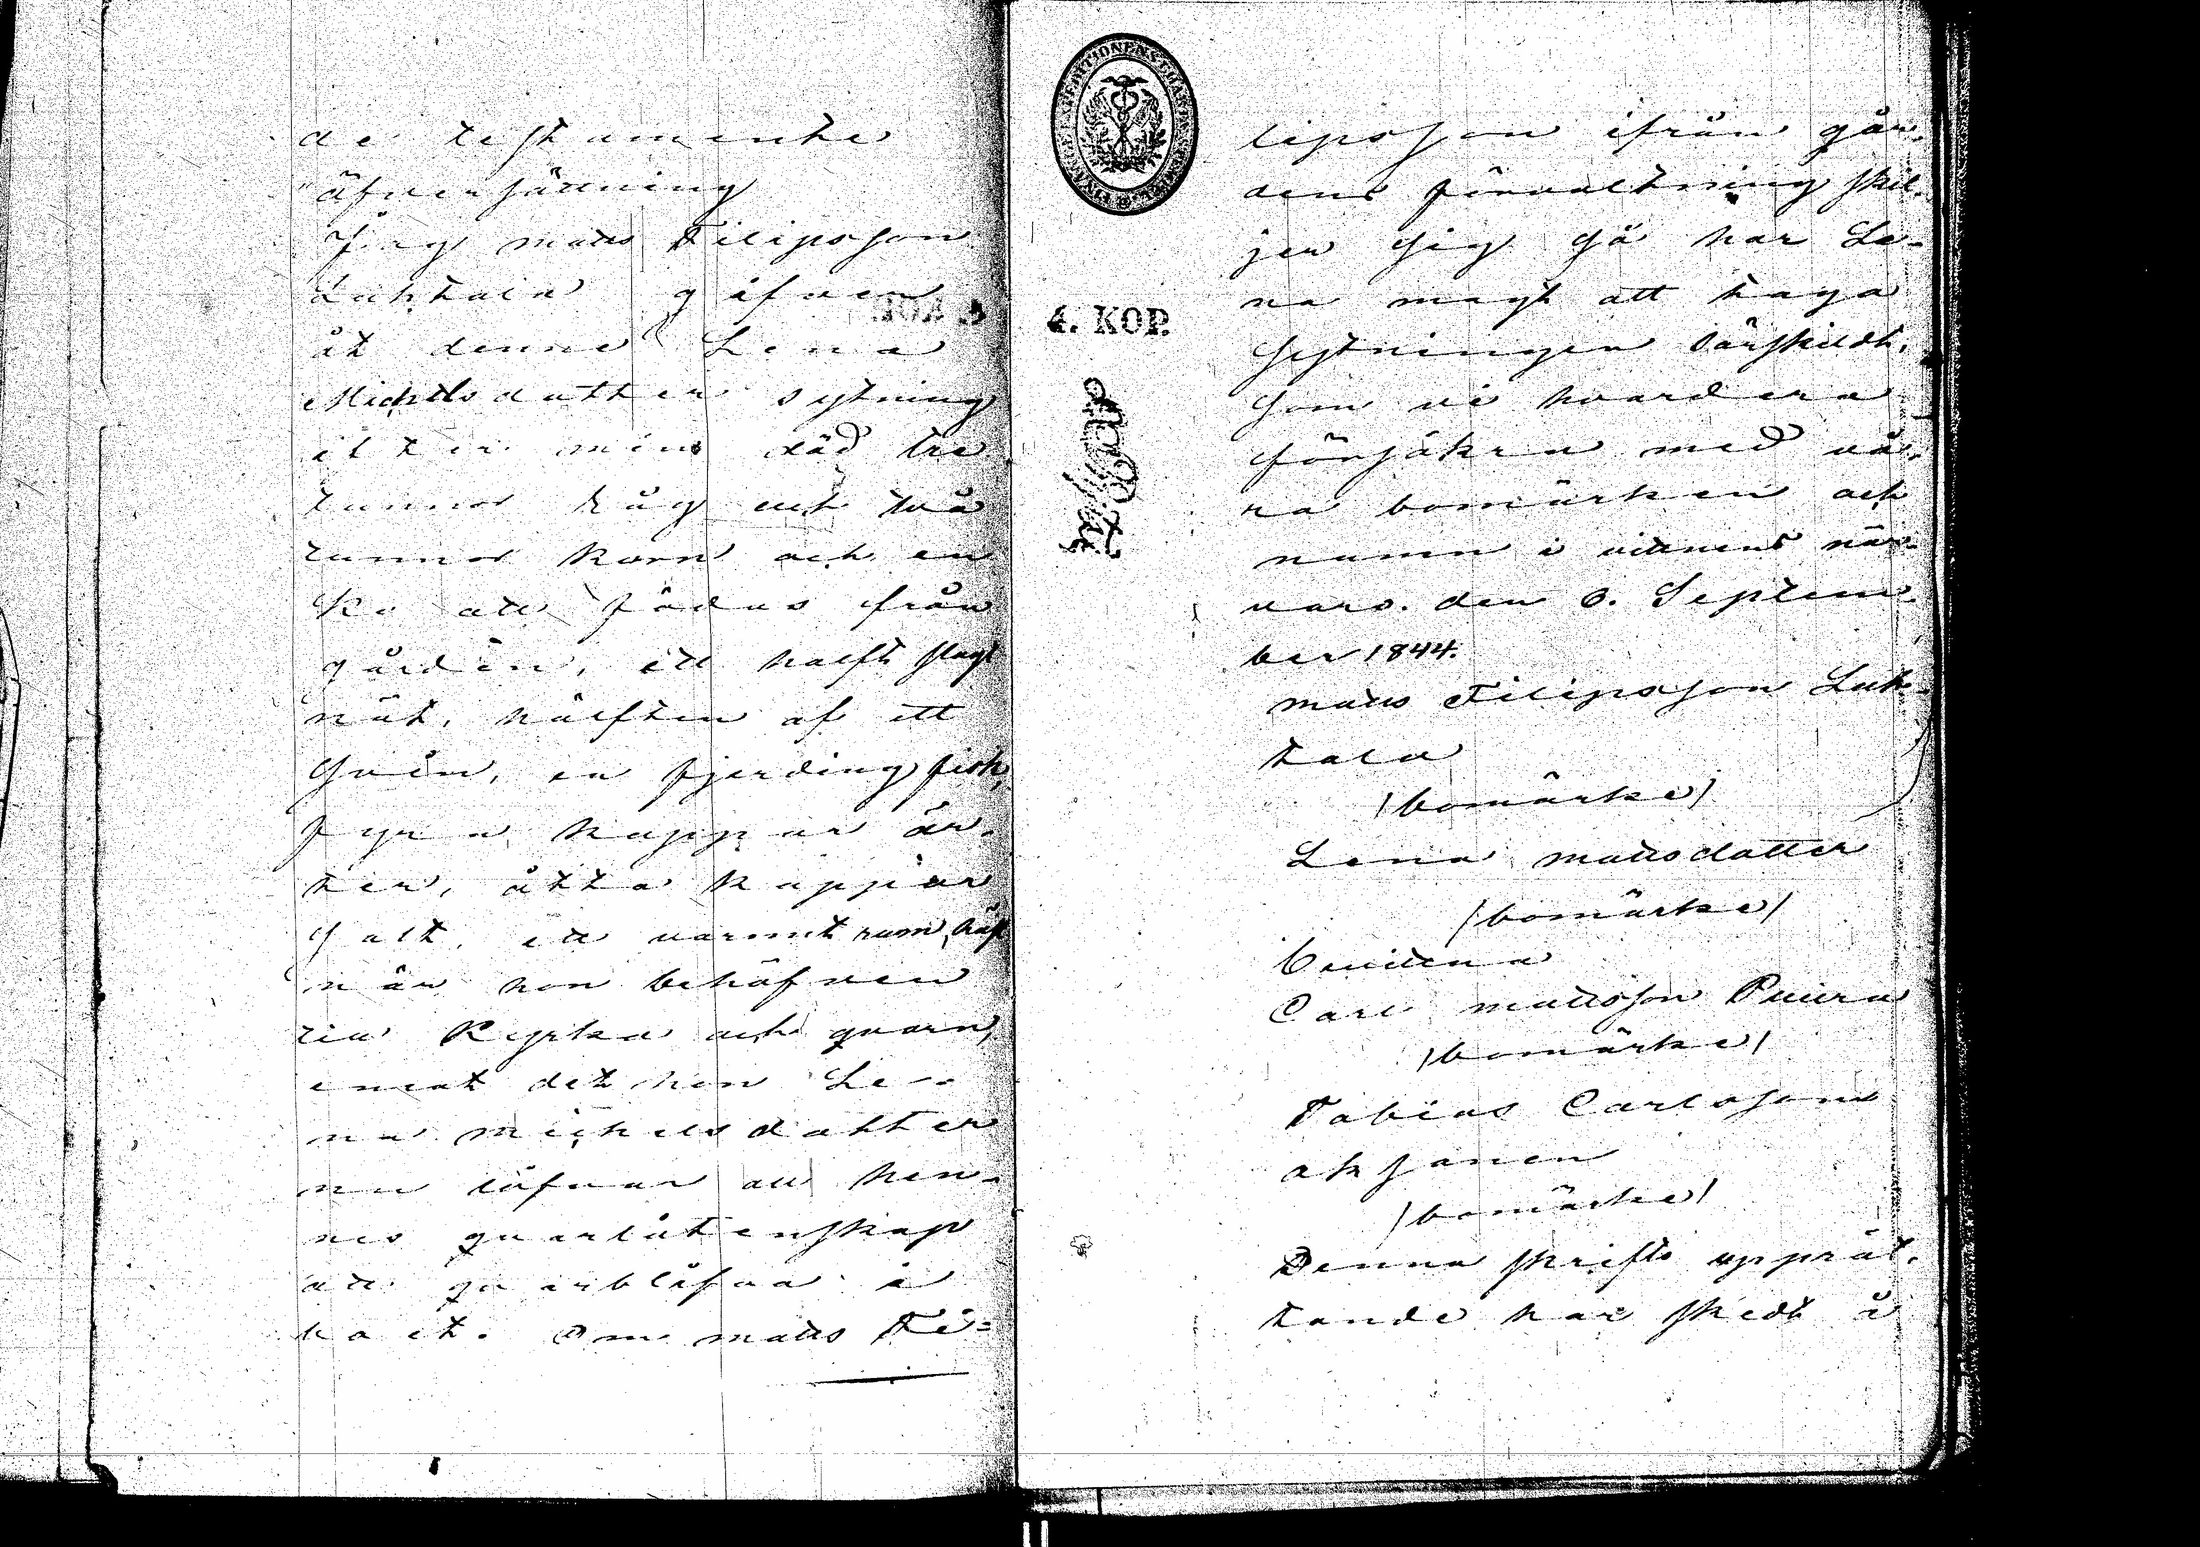 de testamente
öfversättning
Jag matts Filipsson
Luhtala gifver
åt denne Lena
Michelsdotter sytning
efter min död tre
tunnor råg och två
tunnor korn och en
Ko att födas från
gården, ett halft slagt
nöt, hälften af ett
Svin, en fjerding fisk,
fyra kappar är-
ter, åtta kappar
Salt, ett varmt rum, häst
när hon behöfver
till Kyrka och qvarn,
emot det hon Le-
na michelsdotter
nu löfvar att hen-
nes qvarlåtenskap
att qvarblifva i
boet. Om matts Fi-
4. KOP.
lipsson ifrån går-
dens förvaltning skil-
jer sig så har Le-
na magt att taga
Sytningen särskildt,
Som vi hvardera
försäkra med vå-
ra bomärken och
namn i vittnens när-
varo. den 6. Septem-
ber 1844.
matts Filipsson Luh-
tala
/bomärke/
Lena mattsdotter
/bomärke/
bevittna
Carl mattsson
/bomärke/
Tobias Carlsson
/bomärke/
Denna skrifts upprät-
tande har skedt å